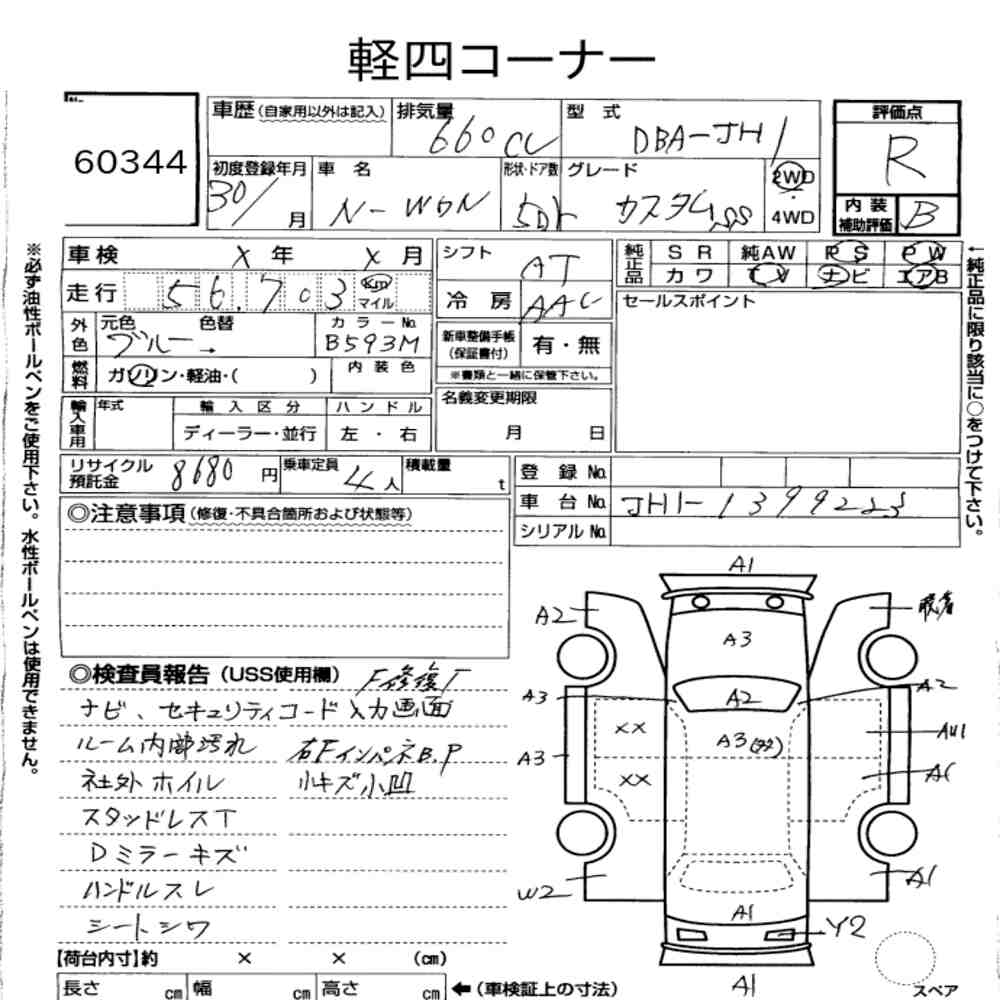 軽四コーナー
60344
車歴 (自家用以外は記入) 排気量 660cc 型式 DBA-JH1
初度登録年月 30/ 月 車名 N-WGN 形状・ドア数 5D グレード カスタムSS 2WD ・ 4WD
評価点 R
内装補助評価 B
※必ず油性ボールペンをご使用下さい。水性ボールペンは使用できません。
車検 X 年 X 月 シフト AT
走行 56,703 km マイル 冷房 AAC
純正品 SR 純AW PS PW
カワ TV ナビ エアB
←純正品に限り該当に○をつけて下さい。
外色 元色 ブルー → 色替 カラーNo. B593M
新車整備手帳(保証書付) 有・無
※書類と一緒に保管下さい。
セールスポイント
燃料 ガソリン・軽油・( ) 内装色
名義変更期限 月 日
輸入車用 年式 輸入区分 ハンドル
ディーラー・並行 左・右
リサイクル預託金 8680 円 乗車定員 4人 積載量 t
登録No.
車台No. JH1-1399223
シリアルNo.
◎注意事項 (修復・不具合箇所および状態等)
◎検査員報告 (USS使用欄) F修復
ナビ、セキュリティコード入力画面
ルーム内部汚れ 右FインパネB.P
社外ホイル 小キズ小凹
スタッドレスT
Dミラーキズ
ハンドルスレ
シートシワ
A1
A2
A3
A3 A2 A2
XX A3 AW1
A3
XX A1
W2 A1 A1
Y2
A1
スペア
【荷台内寸】約 × × (cm)
長さ cm 幅 cm 高さ cm ← (車検証上の寸法)